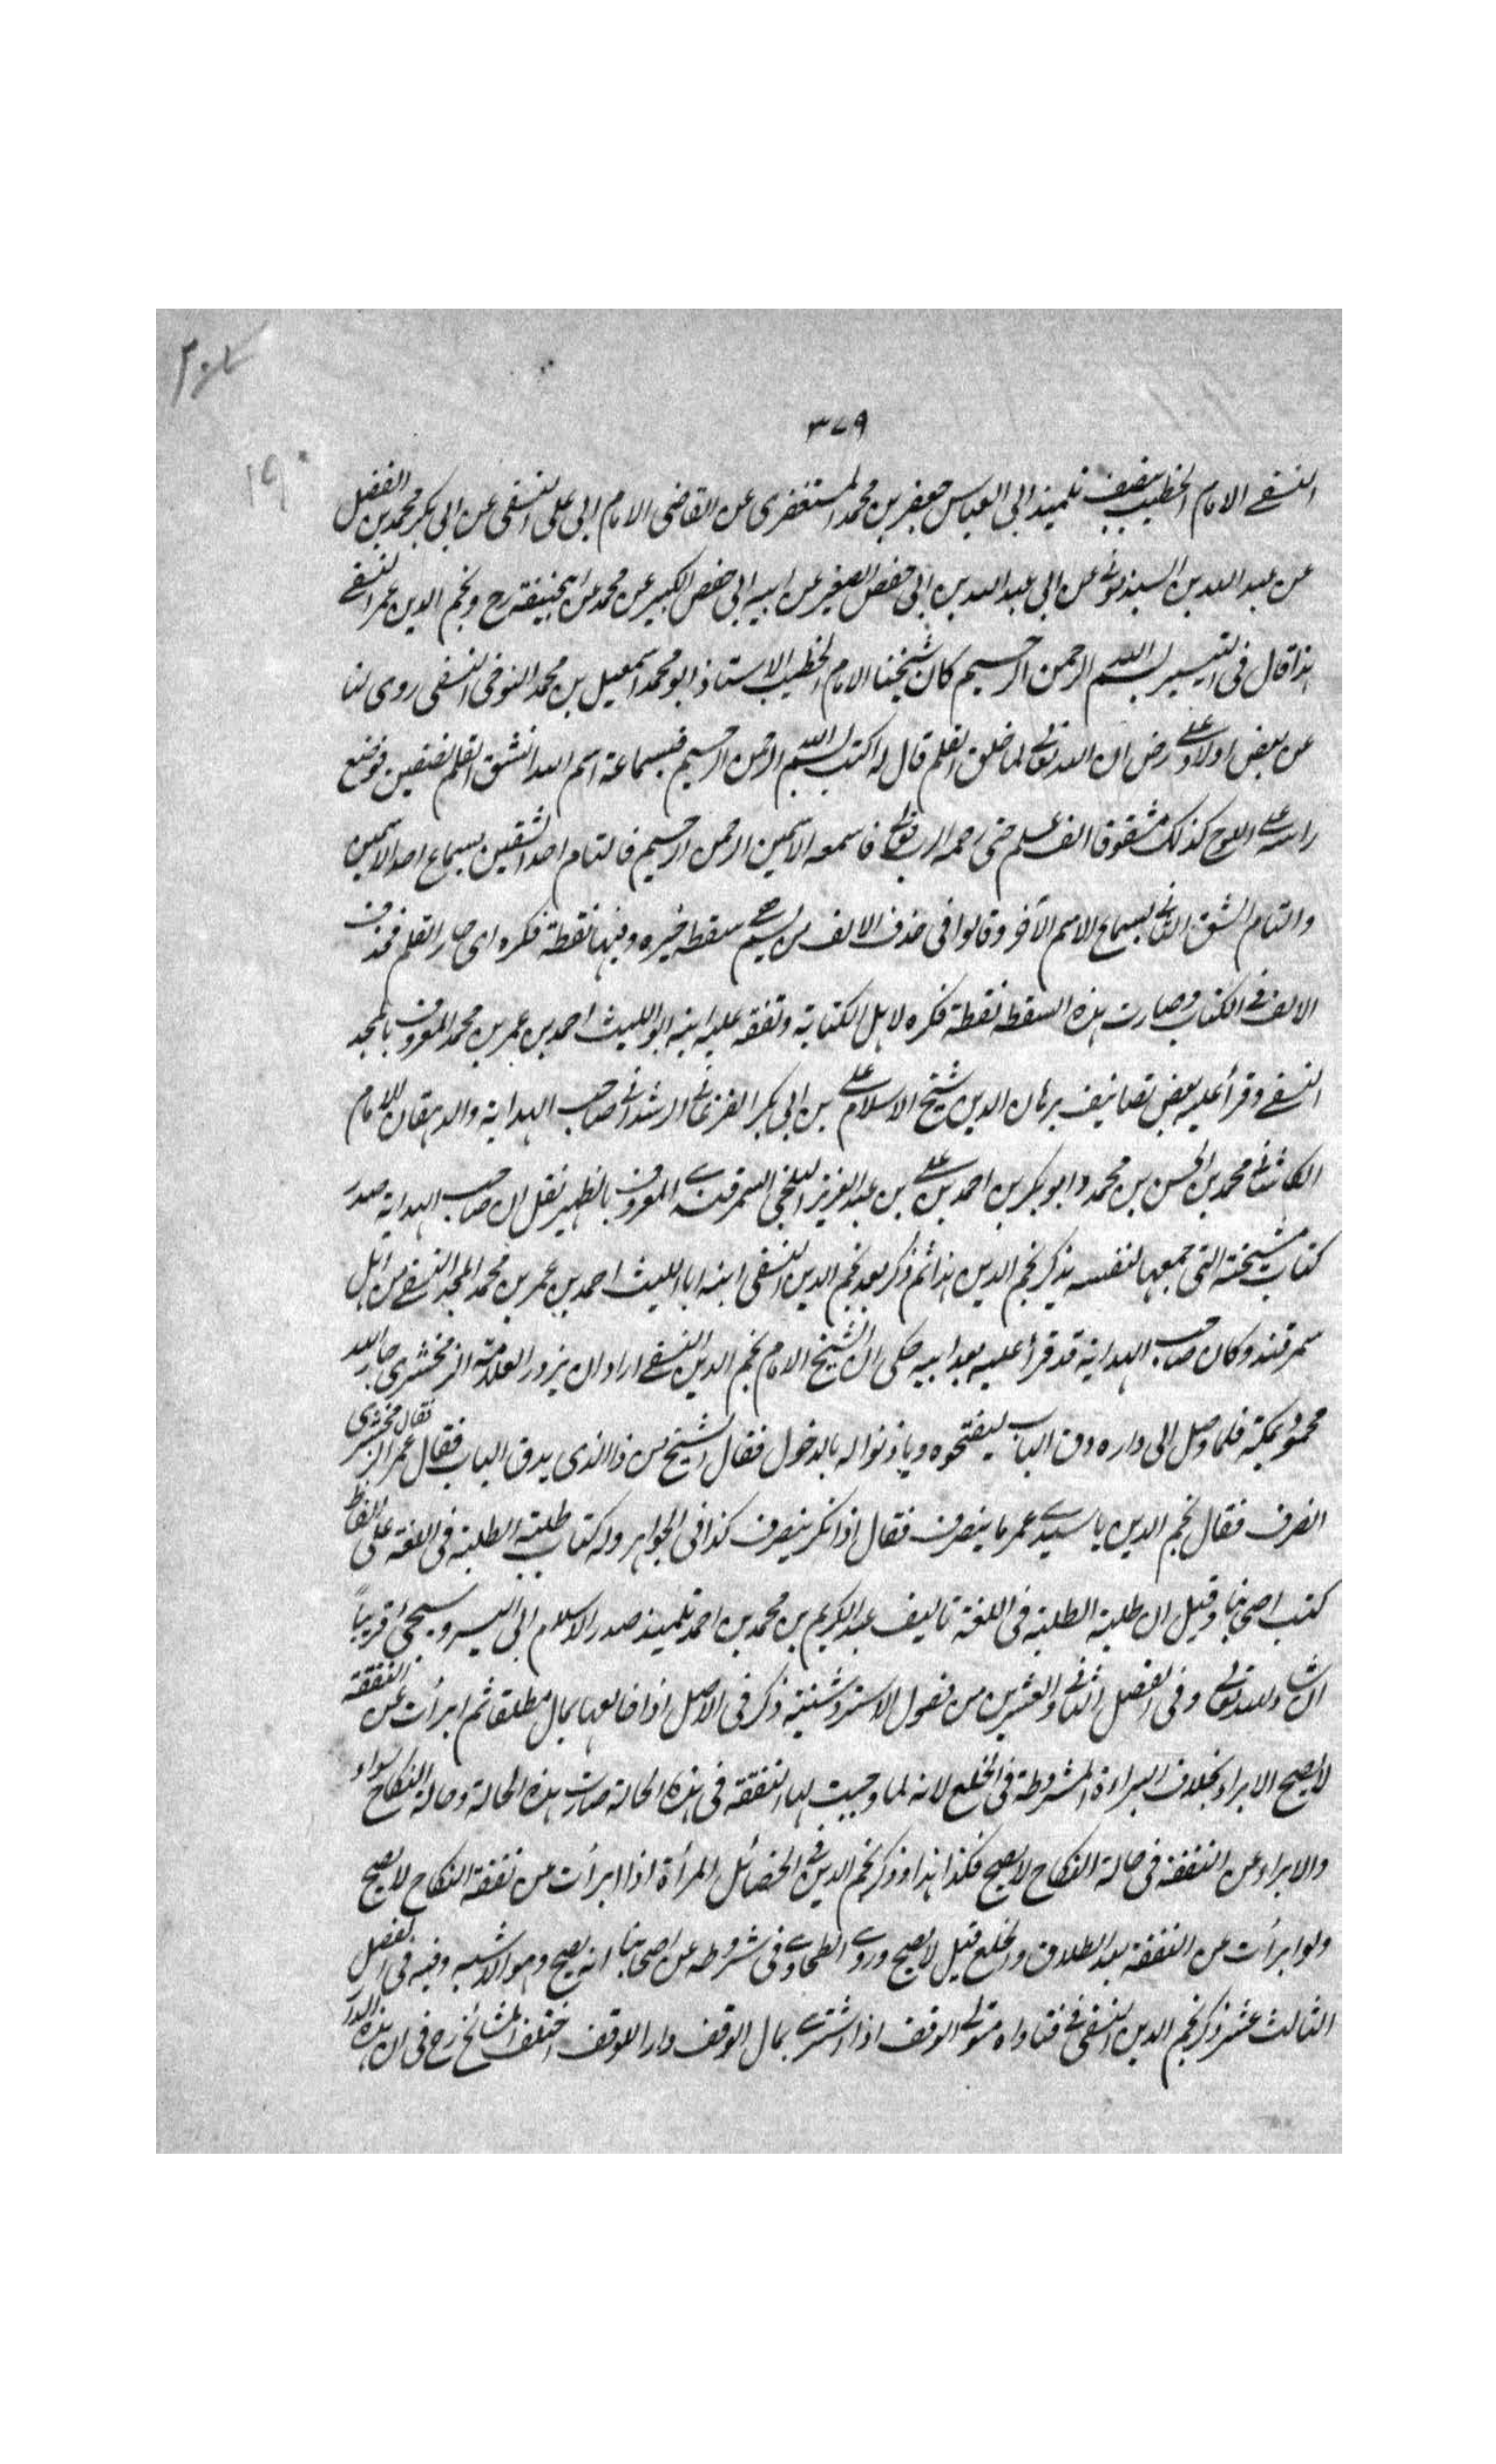 ٣٧٩
النسفے الامام الخطيب بنسف تلميذ ابى العباس جعفر بن محمد المستغفرى عن القاضى الامام ابى على النسفى عن ابى بكر محمد بن الفضل
عن عبد الله بن السبذمونے عن ابى عبد الله بن ابى حفص الصغير عن ابيه ابى حفص الكبير عن محمد عن ابيحنيفة رح ونجم الدين عمر النسفے
هذا قال فى التيسير بسم الله الرحمن الرحيم كان شيخنا الامام الخطيب الاستاذ ابو محمد اسمعيل بن محمد النوحى النسفى روى لنا
عن بعض اولاد على رض ان الله تعالى لما خلق القلم قال له اكتب بسم الله الرحمن الرحيم فبسماعة اسم الله انشق القلم نصفين فوضع
راسه على اللوح كذلك مشقوقا الف عام حتى رحمه الرب تعالى فاسمعه الاسمين الرحمن الرحيم فالتام احد الشقين بسماع احد الاسمين
والتام الشق الثانى بسماع الاسم الآخر وقالوا فى حذف الالف من بسم سقطه خيره وفيها نقطة فكره اى صار القلم فحذف
الالف فى الكتاب وصارت هذه السقطه نقطة فكره لاهل الكتابة وتفقه عليه ابنه ابو الليث احمد بن عمر بن محمد المعروف بالمجد
النسفے وقرأ عليه بعض تصانيف برهان الدين شيخ الاسلام على بن ابى بكر الفرغانى الرشدانى صاحب الهداية والدهقان الامام
الكاشانى محمد بن الحسن بن محمد وابو بكر بن احمد بن على بن عبد العزيز البلخى السمرقندے المعروف بالظهير نقل ان صاحب الهداية صدر
كتاب مشيخته التى جمعها لنفسه بذكر نجم الدين هذا ثم ذكر بعد نجم الدين النسفى ابنه ابا الليث احمد بن عمر بن محمد المجد النسفے من اهل
سمرقند وكان صاحب الهداية قد قرأ عليه بعد ابيه حكى ان الشيخ الامام نجم الدين النسفے اراد ان يزور العلامة الزمخشرى جار الله
محمود بمكة فلما وصل الى داره دق الباب ليفتحوه وياذنوا له بالدخول فقال الشيخ من ذا الذى يدق الباب فقال عمر فقال الزمخشرى
انصرف فقال نجم الدين يا سيدے عمر ما ينصرف فقال اذا نكر ينصرف كذا فى الجواهر وله كتاب طلبة الطلبة فى اللغة على الفاظ
كتب اصحابنا وقيل ان طلبة الطلبة فى اللغة تاليف عبد الكريم بن محمد بن احمد تلميذ صدر الاسلام ابى اليسر وسيجئ قريباً
ان شاء الله تعالى وفى الفصل الثانى والعشرين من فصول الاستروشنية ذكر فى الاصل اذا خالعها بمال مطلقا ثم ابرأت عن النفقة
لا يصح الابراء بخلاف البراءة المشروطة فى الخلع لانه لما وجبت لها النفقة فى هذه الحالة صارت هذه الحالة وحالة النكاح سواء
والابراء عن النفقة فى حالة النكاح لا يصح فكذا هذا وذكر نجم الدين فى الخصائل المرأة اذا ابرأت من نفقة النكاح لا يصح
ولو ابرأت عن النفقة بعد الطلاق والخلع قيل لا يصح وروے الطحاوے فى شروطه عن اصحابنا انه يصح وهو الاشبه وفيه فى الفصل
الثالث عشر ذكر نجم الدين النسفى فى فتاواه متولى الوقف اذا اشترے بمال الوقف دارا للوقف اختلف المشائخ رح فى ان هذه الدار